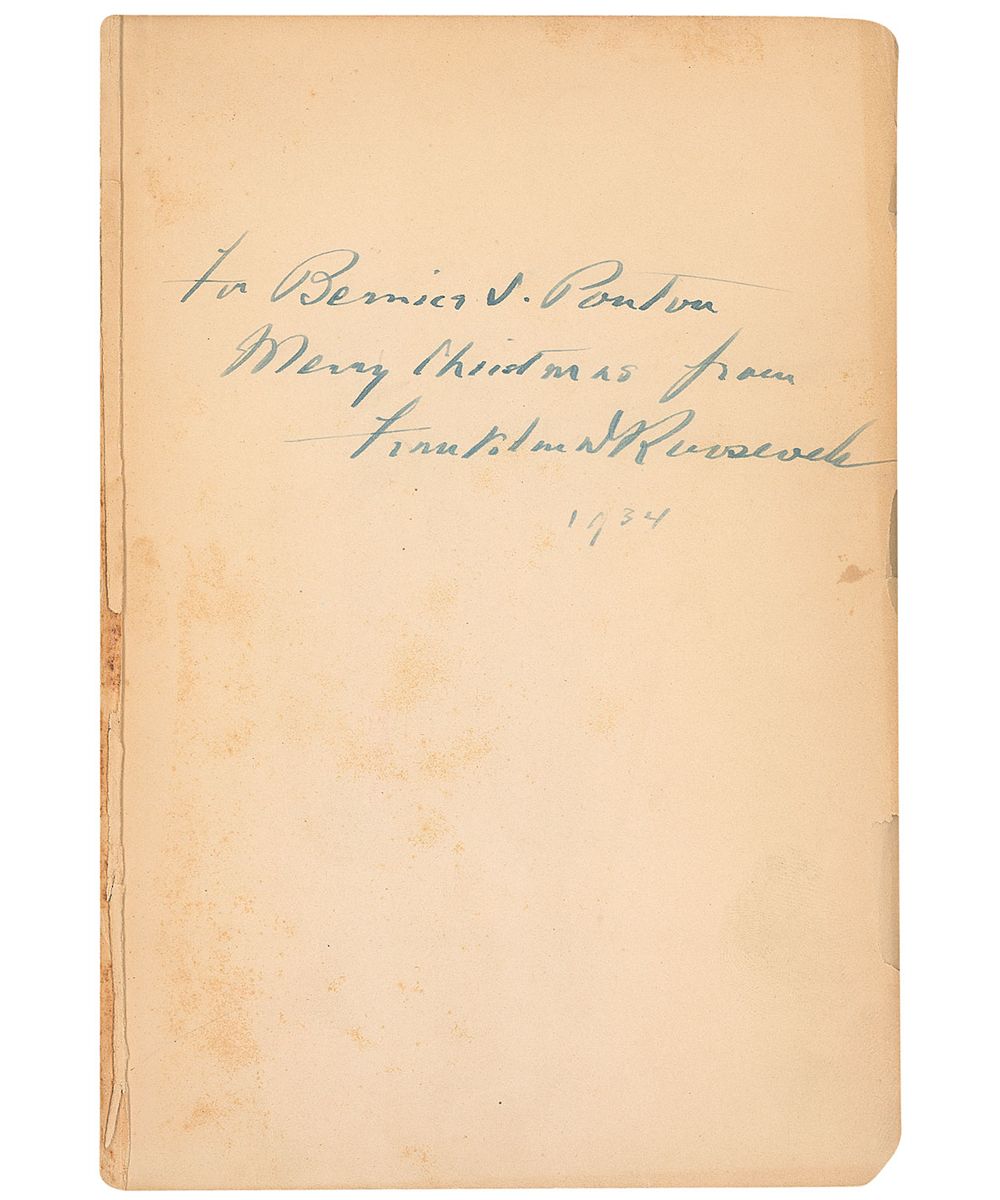 For Bernice S. Ponton
Merry Christmas from
Franklin D Roosevelt
1934